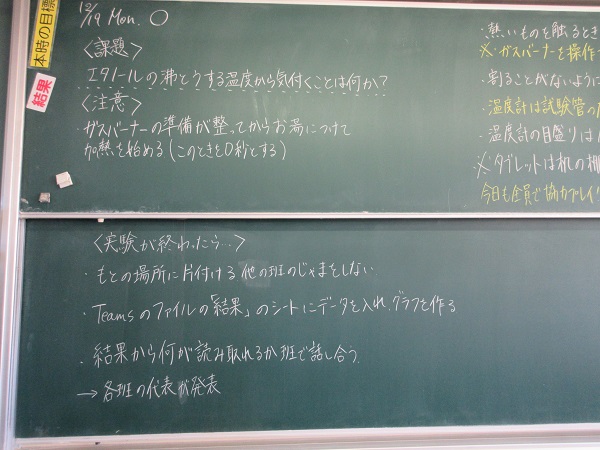 12/19 Mon. ○
本時の目標
結果
<課題>
エタノールの沸とうする温度から気付くことは何か?
<注意>
・ガスバーナーの準備が整ってからお湯につけて
加熱を始める(このときを0秒とする)
・熱いものを触るとき
※ガスバーナーを操作
・割ることがないように
・温度計は試験管の
・温度計の目盛りは
※タブレットは机の棚
今日も全員で協力プレイ
<実験が終わったら…>
・もとの場所に片付ける 他の班のじゃまをしない
・Teamsのファイルの「結果」のシートにデータを入れ、グラフを作る
・結果から何が読み取れるか班で話し合う。
→各班の代表が発表